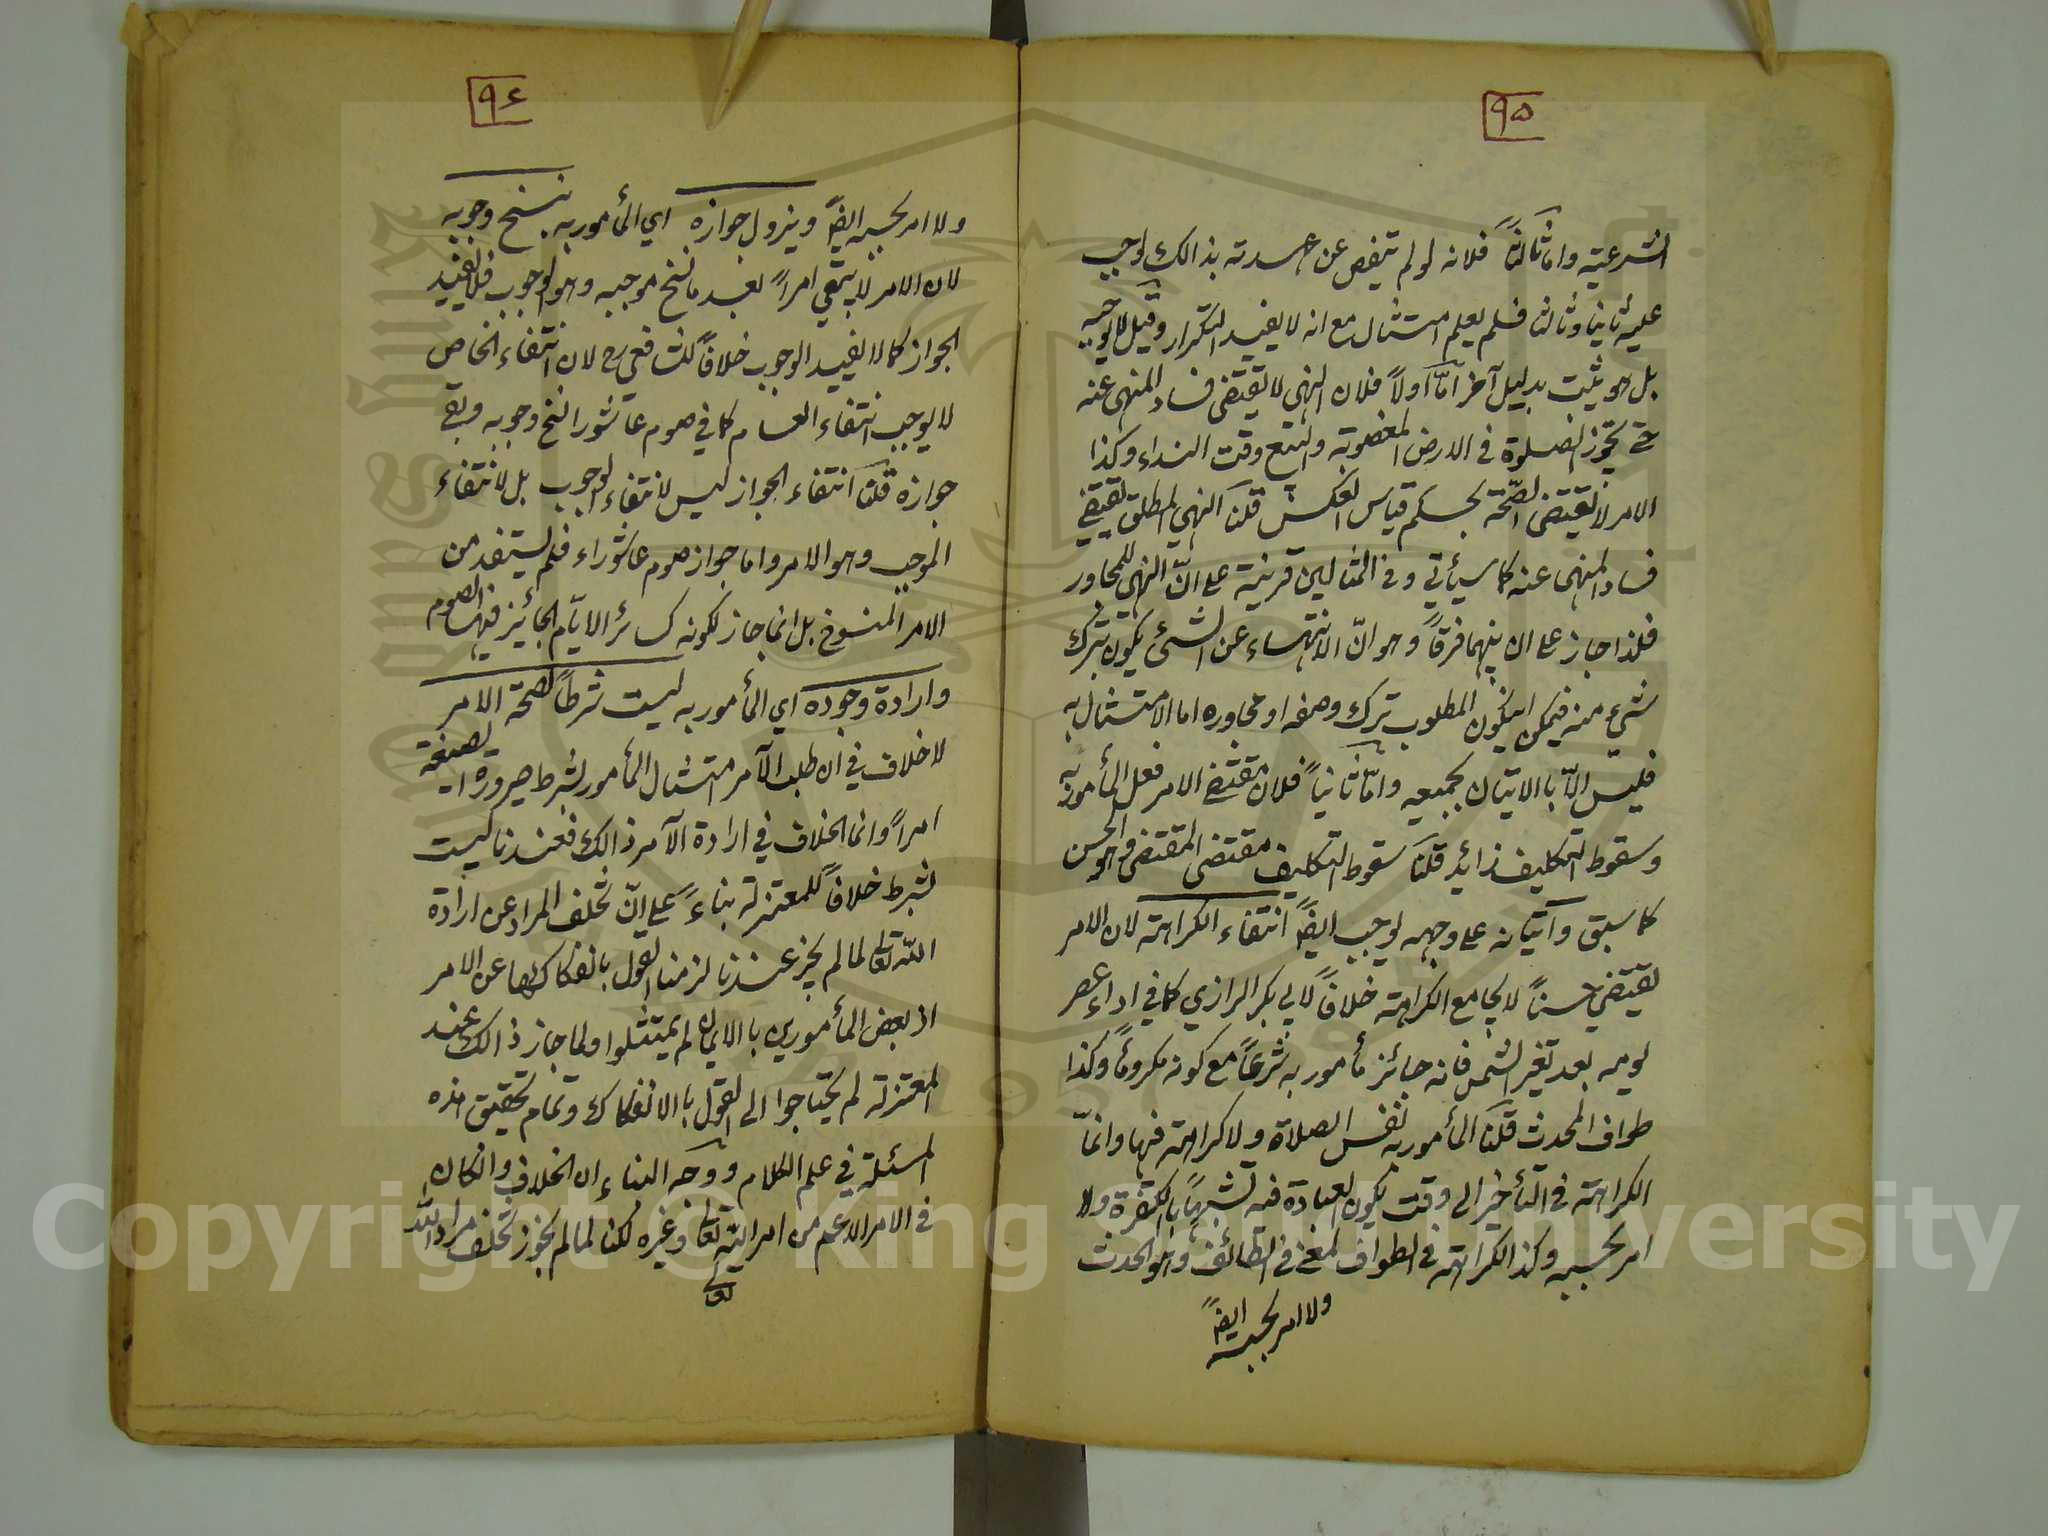 ٩٥
الشرعية واما ثالثاً فلانه لو لم يتفص عن عهدته بذالك لوجب
عليه ثانيا وثالثا فلم يعلم امتثال مع انه لا يفيد التكرار وقيل لا يوجبه
بل هو يثبت بدليل آخر امّا اولاً فلان النهى لا يقتضى فساد المنهى عنه
حتى يجوز الصلوة فى الارض المغصوبة والبيع وقت النداء وكذا
الامر لا يقتضى الصّحة بحكم قياس العكس قلنا النهي المطلق يقتضى
فساد المنهى عنه كما سيأتي وفى المثالين قرينة على انّ النهى للمجاور
فلذا جاز على ان بينهما فرقاً وهو انّ الانتهاء عن الشئ يكون بترك
شيء منه فيمكن ان يكون المطلوب ترك وصفه او مجاوره اما الامتثال به
فليس الاّ با الاتيان بجميعه وامّا ثانياً فلان مقتضى الامر فعل المأمور به
وسقوط التكليف زائد قلنا سقوط التكليف مقتضى المقتضى وهو الحسن
كما سبق واتيانه على وجهه يوجب ايضاً انتفاء الكراهة لان الامر
يقتضى حسناً لا يجامع الكراهة خلافاً لابي بكر الرازي كما في اداء عصر
يومه بعد تغير الشمس فانه جائز مأمور به شرعاً مع كونه مكروهاً وكذا
طواف المحدث قلنا المأمور به نفس الصلاة ولا كراهة فيها وانمّا
الكراهة فى التأخير الى وقت يكون العبادة فيه تشبهاً بالكفرة ولا
امر بحسبه وكذا الكراهة فى الطواف لمعنى فى الطائف وهو الحدث
ولا امر بحسبه ايضاً
٩٤
ولا امر بحسبه ايضاً ويزول جوازه اي المأمور به بنسخ وجوبه
لان الامر لا يبقى امراً بعد ما نسخ موجبه وهو الوجوب فلا يفيد
الجواز كما لا يفيد الوجوب خلافاً للشافعي رح لان انتفاء الخاص
لا يوجب انتفاء العام كما في صوم عاشورا نسخ وجوبه وبقى
جوازه قلنا انتفاء الجواز ليس لانتفاء الوجوب بل لانتفاء
الموجب وهو الامر واما جواز صوم عاشوراء فلم يستفد من
الامر المنسوخ بل انما جاز لكونه كسائر الايّام الجائز فيها الصوم
وارادة وجوده اي المأمور به ليست شرطاً لصحة الامر
لا خلاف في ان طلب الآمر امتثال المأمور شرط صيرورة الصيغة
امراً وانما الخلاف في ارادة الآمر ذالك فعندنا ليست
بشرط خلافاً للمعتزلة بناءً على انّ تخلف المراد عن ارادة
اللّه تعالى لما لم يجز عندنا لزمنا القول بانفكاكها عن الامر
اذ بعض المأمورين با الايمان لم يمتثلوا ولما جاز ذالك عند
المعتزلة لم يحتاجوا الى القول با الانفكاك وتمام تحقيق هذه
المسئلة في علم الكلام ووجه البناء ان الخلاف وان كان
فى الامر الاعم من امر اللّه تعالى وغيره لكنا لما لم يجوز تخلف مراد اللّه
تعالى
Copyright © King Saud University